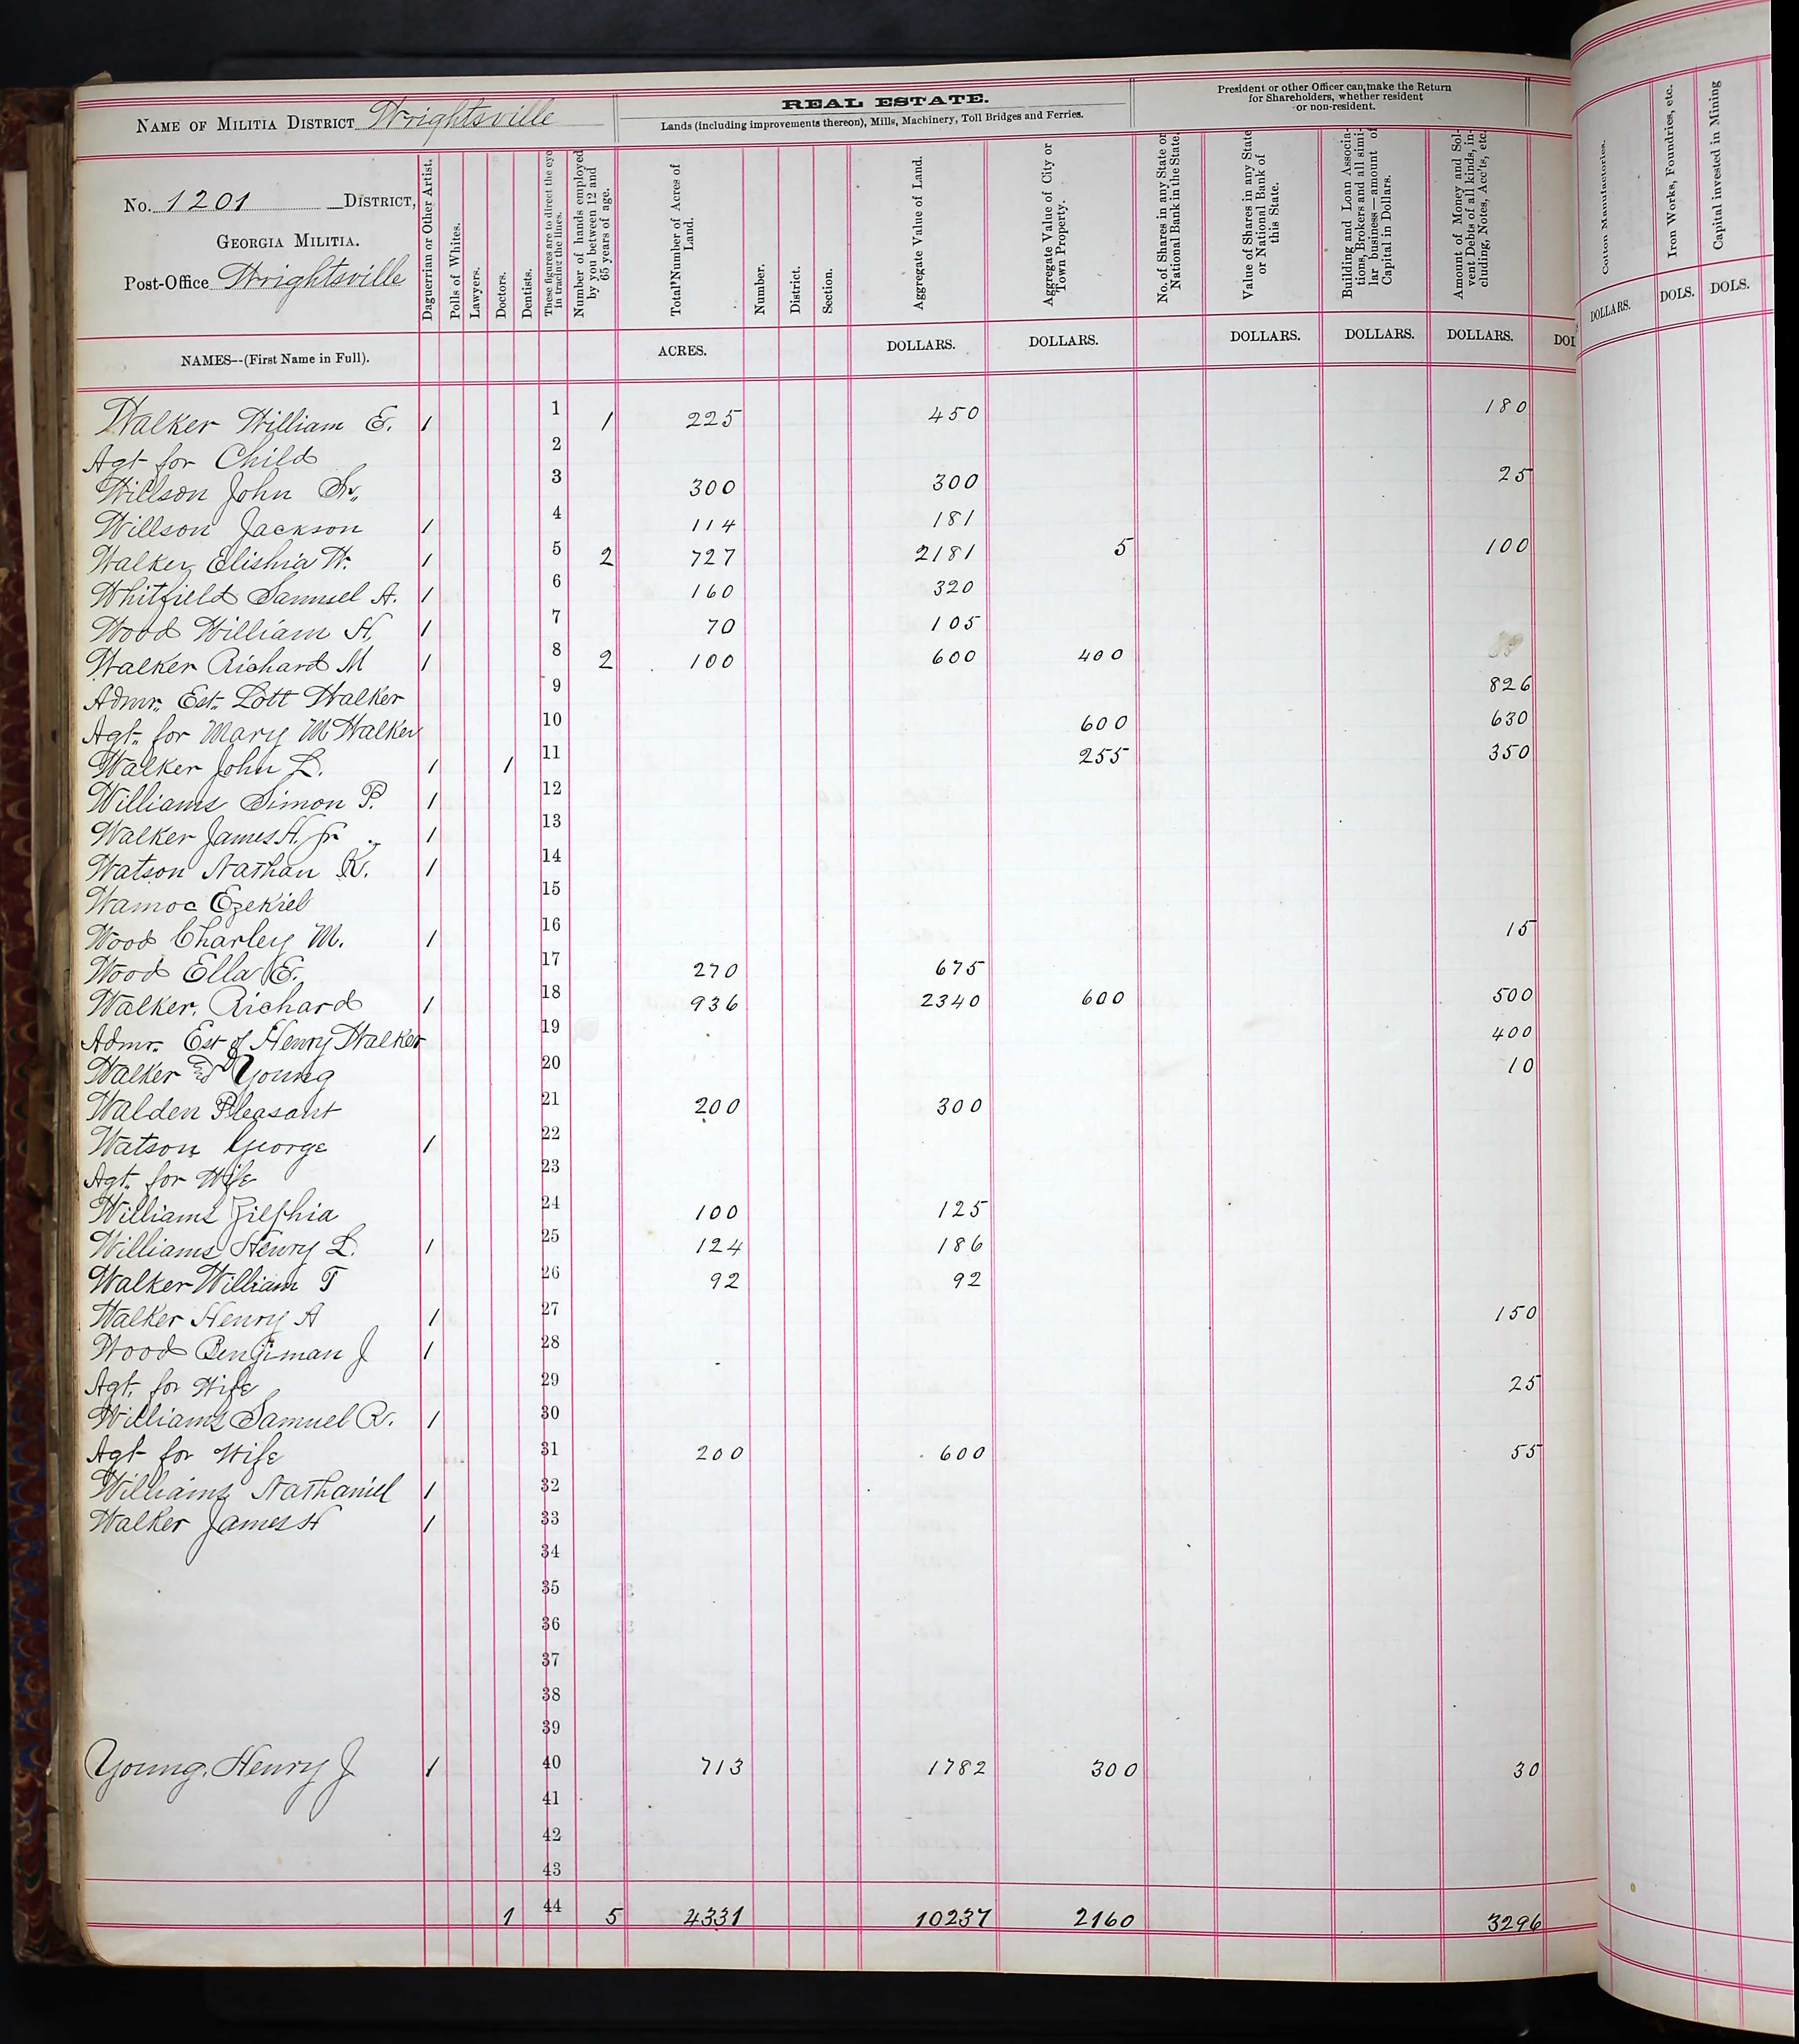 NAME OF MILITIA DISTRICT Wrightsville
No. 1201 DISTRICT,
GEORGIA MILITIA.
Post-Office Wrightsville
NAMES--(First Name in Full).
Daguerrian or Other Artist.
Polls of Whites.
Lawyers.
Doctors.
Dentists.
These figures are to direct the eye in tracing the lines.
Number of hands employed by you between 12 and 65 years of age.
REAL ESTATE.
Lands (including improvements thereon), Mills, Machinery, Toll Bridges and Ferries.
Total Number of Acres of Land.
ACRES.
Number.
District.
Section.
Aggregate Value of Land.
DOLLARS.
Aggregate Value of City or Town Property.
DOLLARS.
President or other Officer can make the Return for Shareholders, whether resident or non-resident.
No. of Shares in any State or National Bank in the State.
Value of Shares in any State or National Bank of this State.
DOLLARS.
Building and Loan Associations, Brokers and all similar business—amount of Capital in Dollars.
DOLLARS.
Amount of Money and Solvent Debts of all kinds, including, Notes, Acc'ts, etc.
DOLLARS.
DOL
Cotton Manufactories.
DOLLARS.
Iron Works, Foundries, etc.
DOLS.
Capital invested in Mining
DOLS.
Walker William E. 1 1 1 225 450 180
Agt for Child 2
Willson John Sr. 3 300 300 25
Willson Jackson 1 4 114 181
Walker Elishia W. 1 5 2 727 2181 5 100
Whitfield Samuel A. 1 6 160 320
Wood William H. 1 7 70 105
Walker Richard M 1 8 2 100 600 400
Admr. Est. Lott Walker 9 826
Agt. for Mary M Walker 10 600 630
Walker John L. 1 1 11 255 350
Williams Simon P. 1 12
Walker James H. Jr 1 13
Watson Nathan K. 1 14
Wamoc Ezekiel 15
Wood Charley M. 1 16 15
Wood Ella E. 17 270 675
Walker, Richard 1 18 936 2340 600 500
Admr. Est of Henry Walker 19 400
Walker & Young 20 10
Walden Pleasant 21 200 300
Watson George 1 22
Agt. for Wife 23
Williams Zilphia 24 100 125
Williams Henry L. 1 25 124 186
Walker William T 26 92 92
Walker Henry A 1 27 150
Wood Benjiman J 1 28
Agt. for Wife 29 25
Williams Samuel R. 1 30
Agt for Wife 31 200 600 55
Williams Nathaniel 1 32
Walker James H 1 33
34
35
36
37
38
39
Young, Henry J 1 40 713 1782 300 30
41
42
43
1 44 5 4331 10237 2160 3296